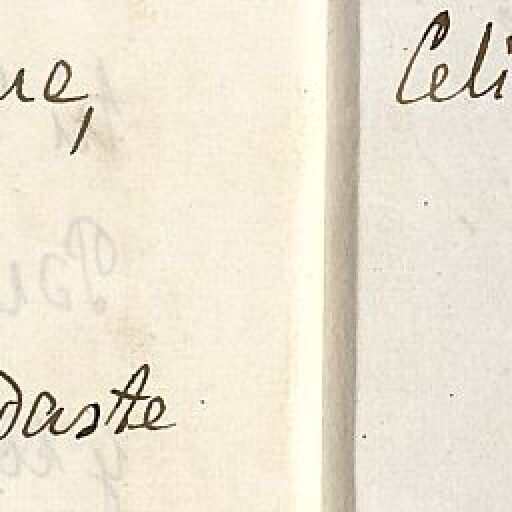 ue,
daste
Celi